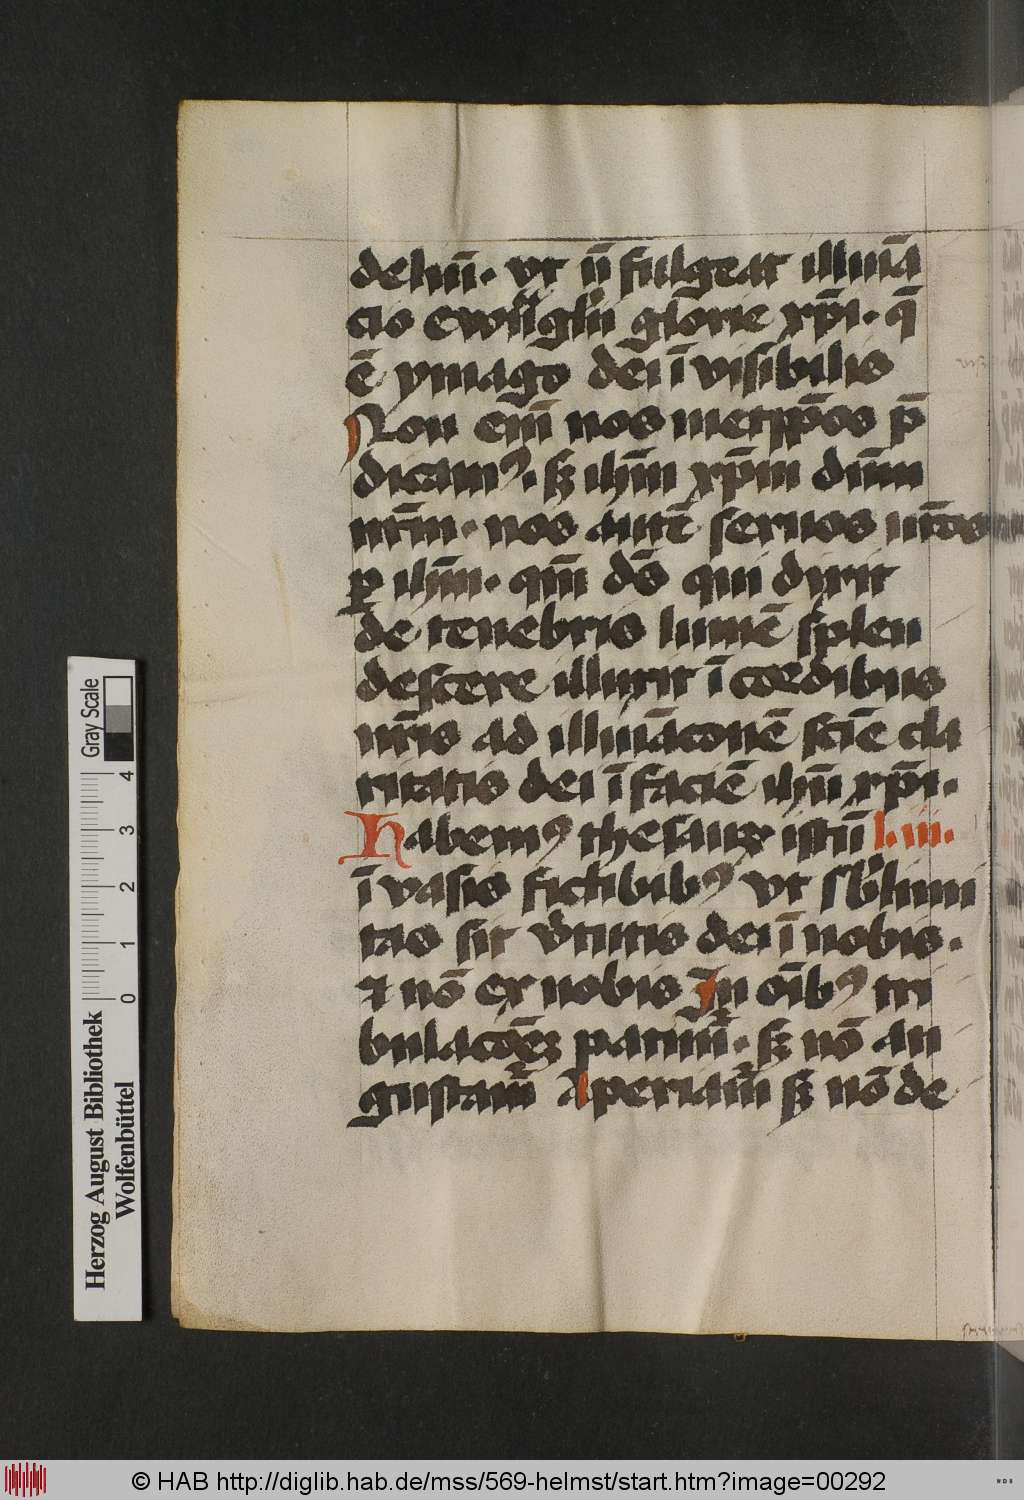 deliū. vt nō fulgeat illuīa
cio ewāgelii glorie xp̄i. q̄
ē ymago dei īvisibilis
Non em̄ nos metip̄os p̄
dicamꝰ. sꝫ ihm̄ xp̄m dn̄m
nr̄m. nos autē seruos vr̄os
ꝑ ihm̄. qm̄ ds̄ qui dixit
de tenebris lumē splen
descere illuxit ī cordibus
nr̄is ad illuīacōnē scīe cla
ritatis dei ī faciē ihū xp̄i.
Habemꝰ thesauꝝ istū l. iii.
ī vasis fictilibꝰ vt sblimi
tas sit v̄tutis dei ī nobis.
⁊ nō ex nobis In oīb⁹ tri
bulacōeꝫ patimur̄. sꝫ nō an
gustam̄ Aperiam̄ sꝫ nō de
Gray Scale
4
3
2
1
0
Herzog August Bibliothek
Wolfenbüttel
© HAB http://diglib.hab.de/mss/569-helmst/start.htm?image=00292